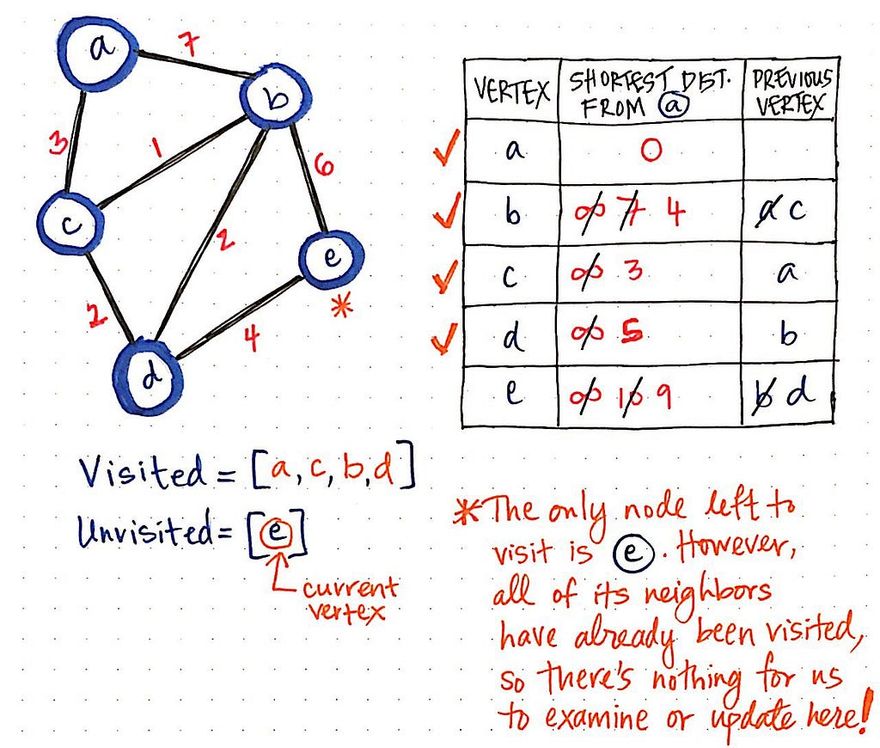 a
7
b
3
1
6
c
2
e
*
2
4
d
VERTEX SHORTEST DIST. FROM a PREVIOUS VERTEX
✓ a 0
✓ b ∞ 7 4 a c
✓ c ∞ 3 a
✓ d ∞ 5 b
e ∞ 10 9 b d
Visited = [a, c, b, d]
Unvisited = [e]
current
vertex
*The only node left to
visit is e. However,
all of its neighbors
have already been visited,
so there's nothing for us
to examine or update here!